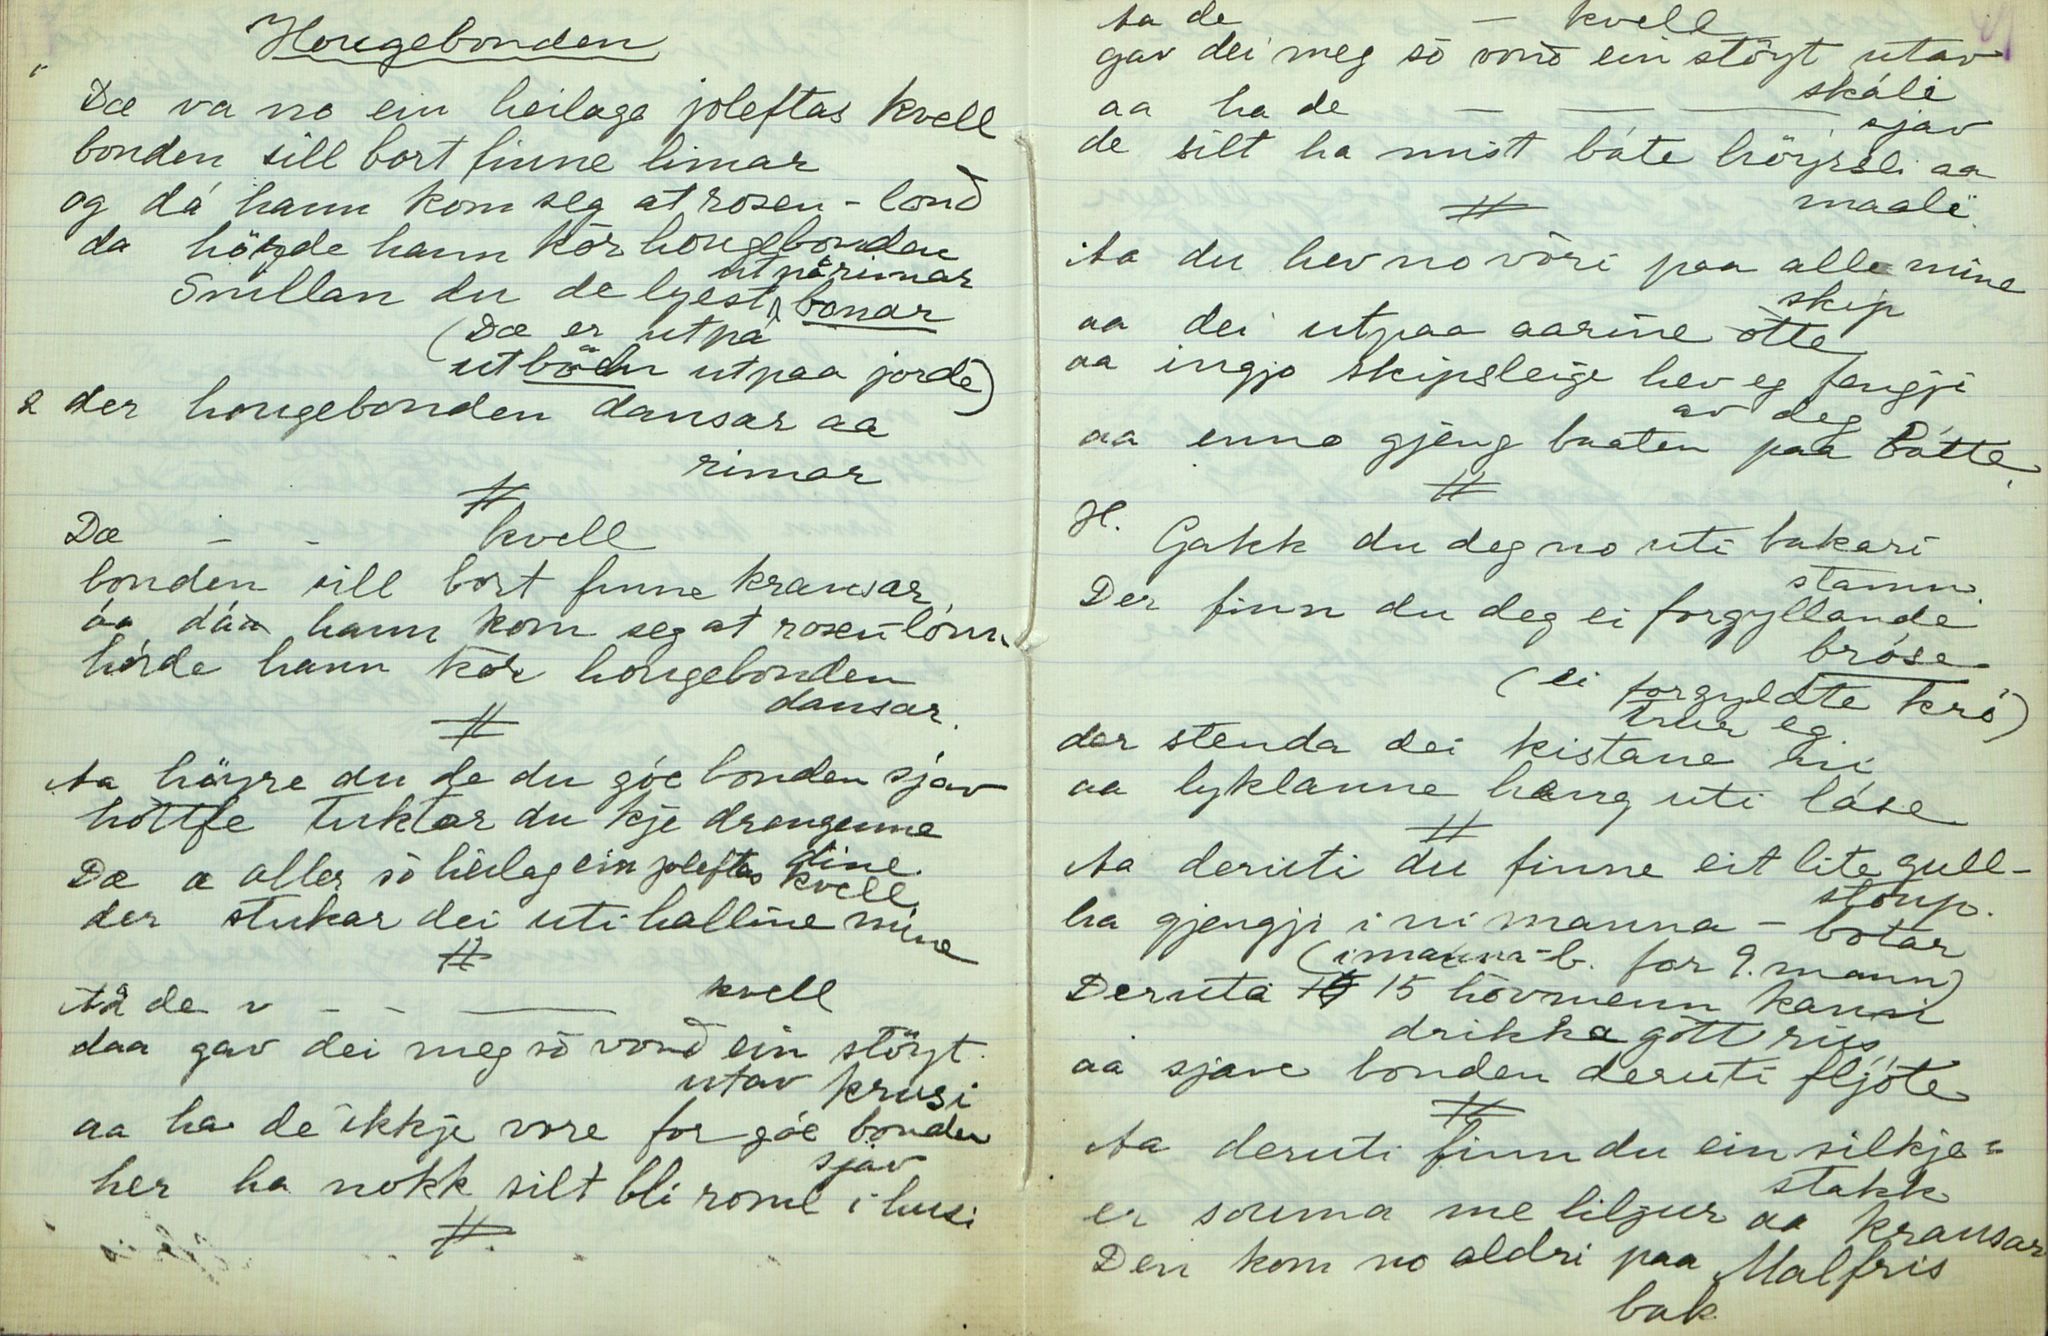 Hougebonden
Dæ va no ein heilage joleftas kvell
bonden sill bort finne limar
og då hann kom seg at rosen-lond
da höyde hann kor hougebonden
utpå rimar
Snillan du de lyest bonar
(Dæ er utpå
utböen utpaa jorde)
2 der hougebonden dansar aa
rimar
#
Dæ - - kvell
bonden sill bort finne kransar
áa dáa hann kom seg at rosenlónn
hórde hann kor hougebonden
dansar.
#
Aa höyre du de du góe bonden sjav
hottfe tuktar du kje drengjenne
dine.
Dæ æ aller sò heilag ein joleftas kvell
der stukar dei uti halline mine
#
Aa de v - - — kvell
daa gav dei meg sò vond ein stöyt
utav krusi
aa ha de ikkje vore for góe bonden
sjav
her ha nokk silt bli romt i husi
#
Aa de — kvell
gav dei meg sò vond ein stöyt utav
skáli
aa ha de — — —
sjav
de silt ha mist báte höyrsli aa
maali
#
Aa du hev no vòri paa alle mine
skip
aa dei utpaa aarine òtte
aa ingjo skipsleige hev eg fengji
av deg
aa enno gjeng baaten paa bátte.
#
H. Gakk du deg no uti bakari
stamn.
Der finn du deg ei forgyllande
bróse
(ei forgyldte krö)
trur eg.
der stenda dei kistane ni
aa lyklanne heng uti láse
#
Aa deruti du finne eit lite gull-
stoup.
ha gjengji i ni manna - botar
(i manna-b. for 9. mann)
Deruta 15 hövmenn kann
drikka gott rus
aa sjave bonden deruti fljóte
#
Aa deruti finn du ein silkje=
stakk
er souma me liljur aa kransar
Den kom no aldri paa Malfris
bak